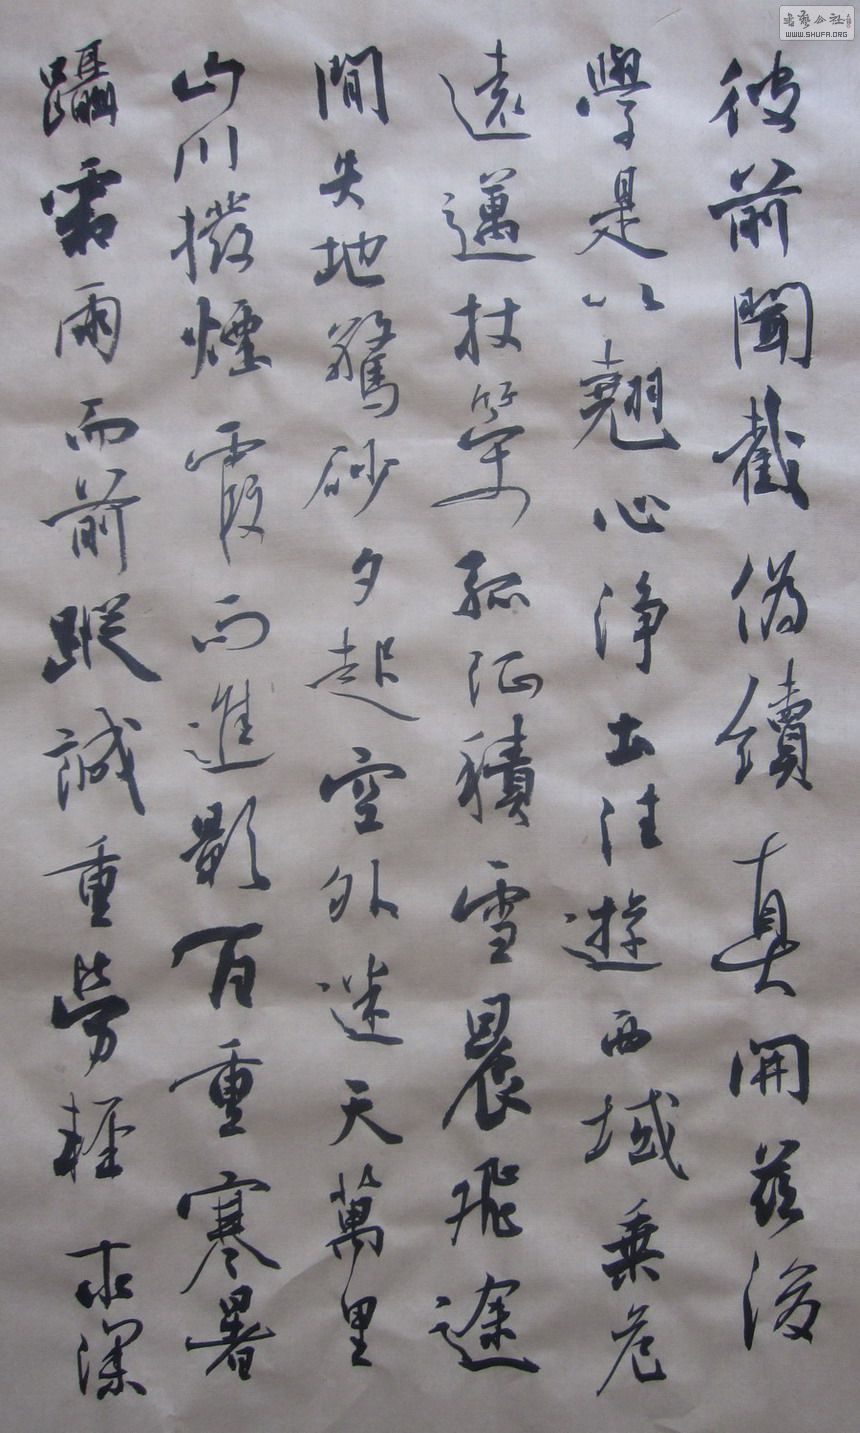 彼前聞截偽續真開茲後
學是以翹心淨土往遊西域乗危
遠邁杖策孤征積雪晨飛途
間失地驚砂夕起空外迷天萬里
山川撥煙霞而進影百重寒暑
躡霜雨而前蹤誠重勞輕求深
WWW.SHUFA.ORG